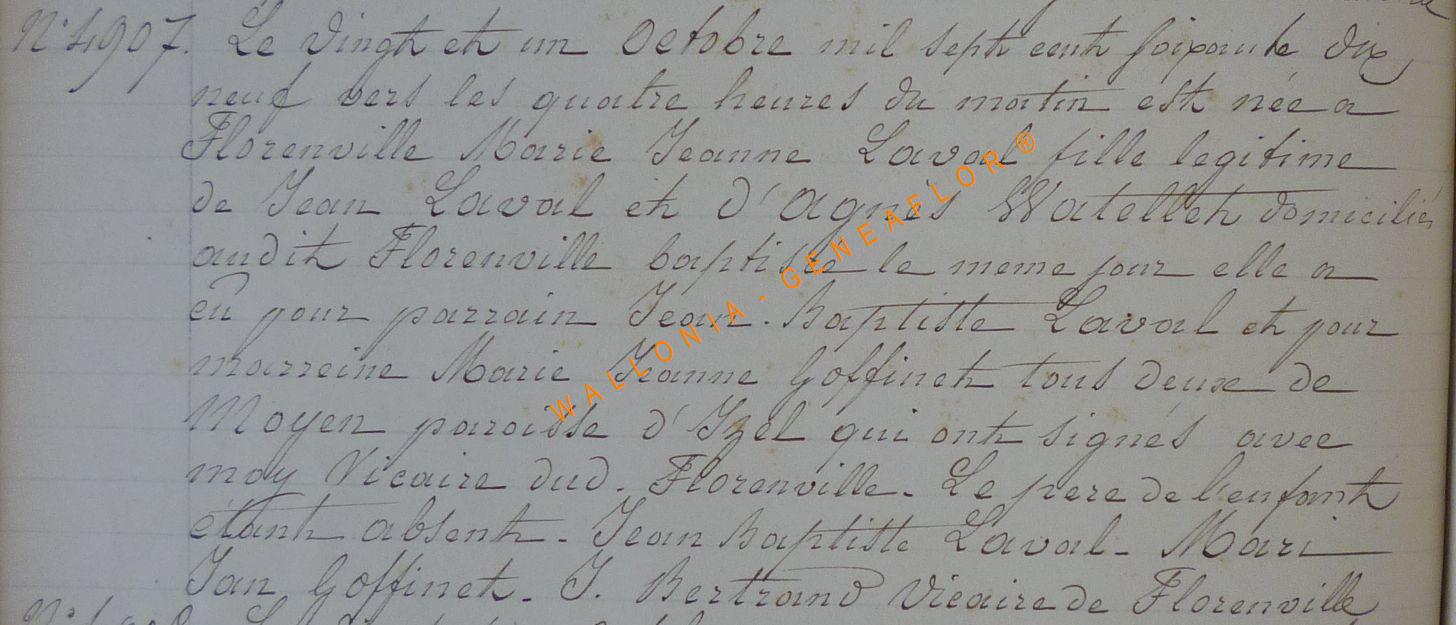 N° 4907. Le vingt et un Octobre mil sept cent soixante dix
neuf vers les quatre heures du matin est née a
Florenville Marie Jeanne Laval fille legitime
de Jean Laval et d'Agnès Watellet domiciliés
audit Florenville baptisée le meme jour elle a
eû pour parrain Jean-Baptiste Laval et pour
marreine Marie Jeanne Goffinet tous deux de
Moyen paroisse d'Izel qui ont signés avec
moy Vicaire dud. Florenville. Le pere de l'enfant
étant absent. Jean Baptiste Laval. Mari
Jan Goffinet. J. Bertrand Vicaire de Florenville
WALLONIA - GENEAFLOR ®